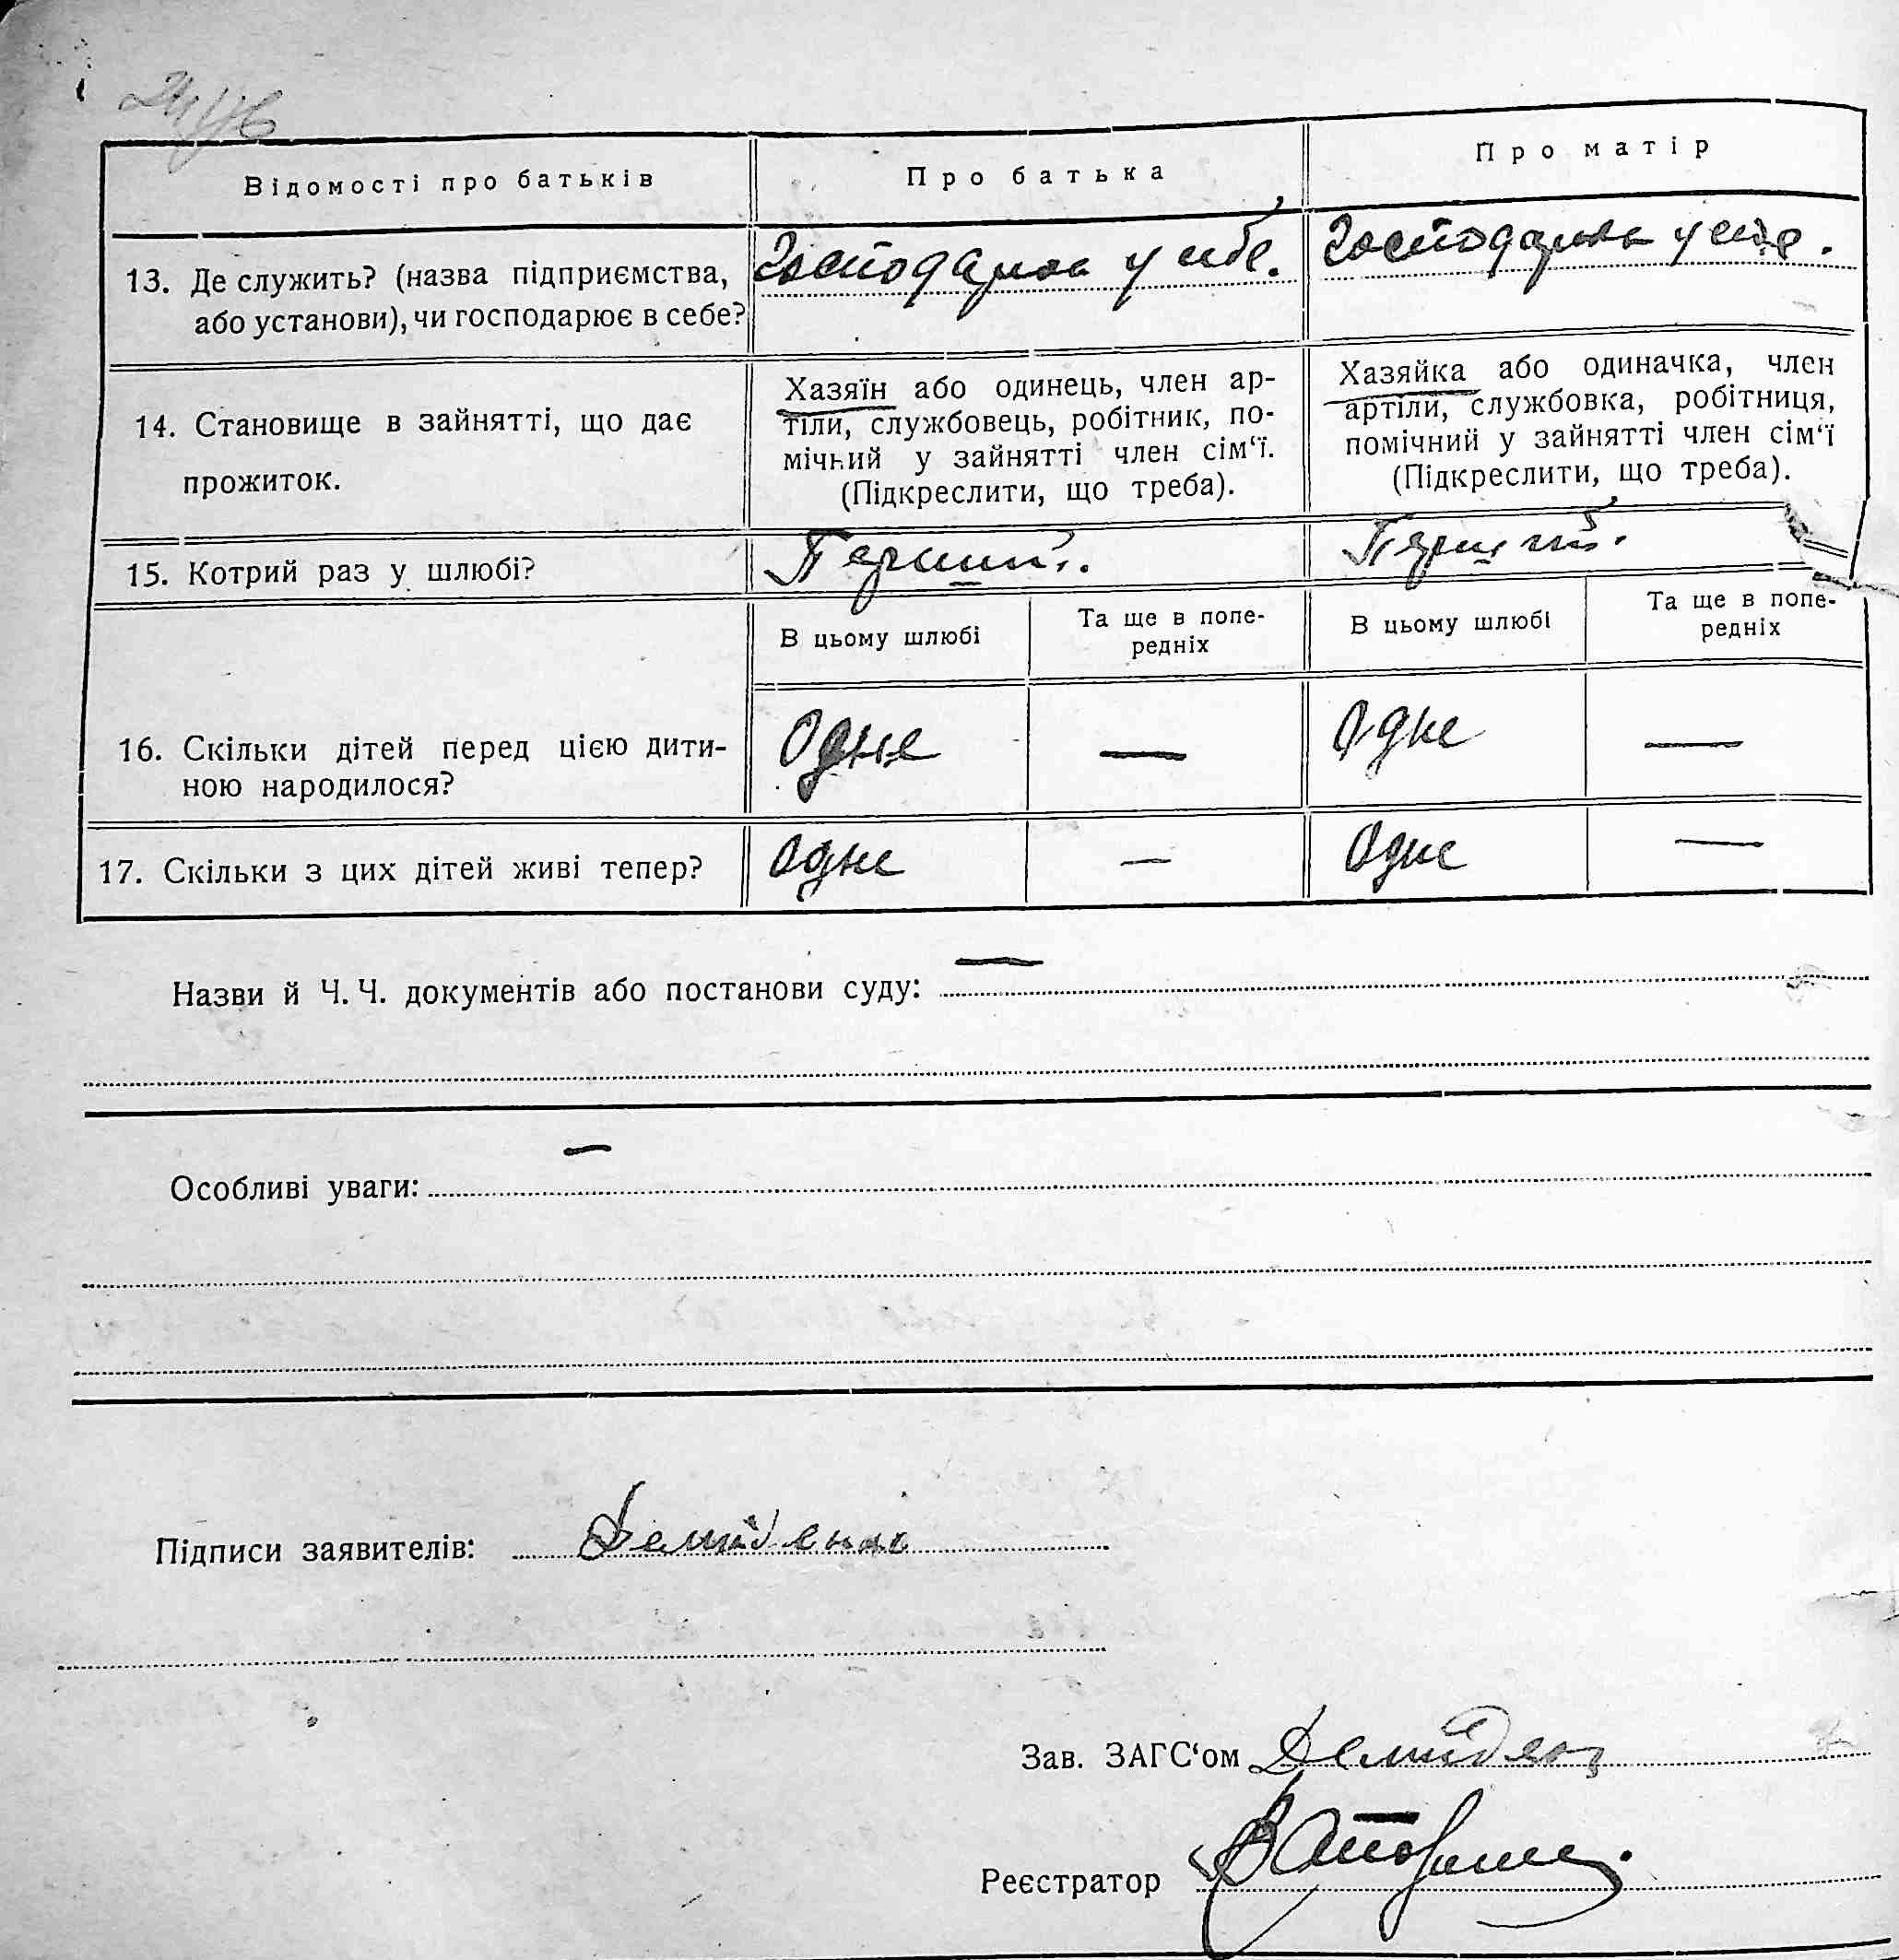 Відомості про батьків
Про батька
Про матір
13. Де служить? (назва підприємства,
або установи), чи господарює в себе?
Господарює у себе.
Господарює у себе.
14. Становище в зайнятті, що дає
прожиток.
Хазяїн або одинець, член ар-
тіли, службовець, робітник, по-
мічний у зайнятті член сім'ї.
(Підкреслити, що треба).
Хазяйка або одиначка, член
артіли, службовка, робітниця,
помічний у зайнятті член сім'ї
(Підкреслити, що треба).
15. Котрий раз у шлюбі?
Перший.
Перший.
В цьому шлюбі
Та ще в попе-
редніх
В цьому шлюбі
Та ще в попе-
редніх
16. Скільки дітей перед цією дити-
ною народилося?
Одне
—
Одне
—
17. Скільки з цих дітей живі тепер?
Одне
—
Одне
—
Назви й Ч. Ч. документів або постанови суду: —
Особливі уваги: —
Підписи заявителів:
Зав. ЗАГС'ом
Реєстратор